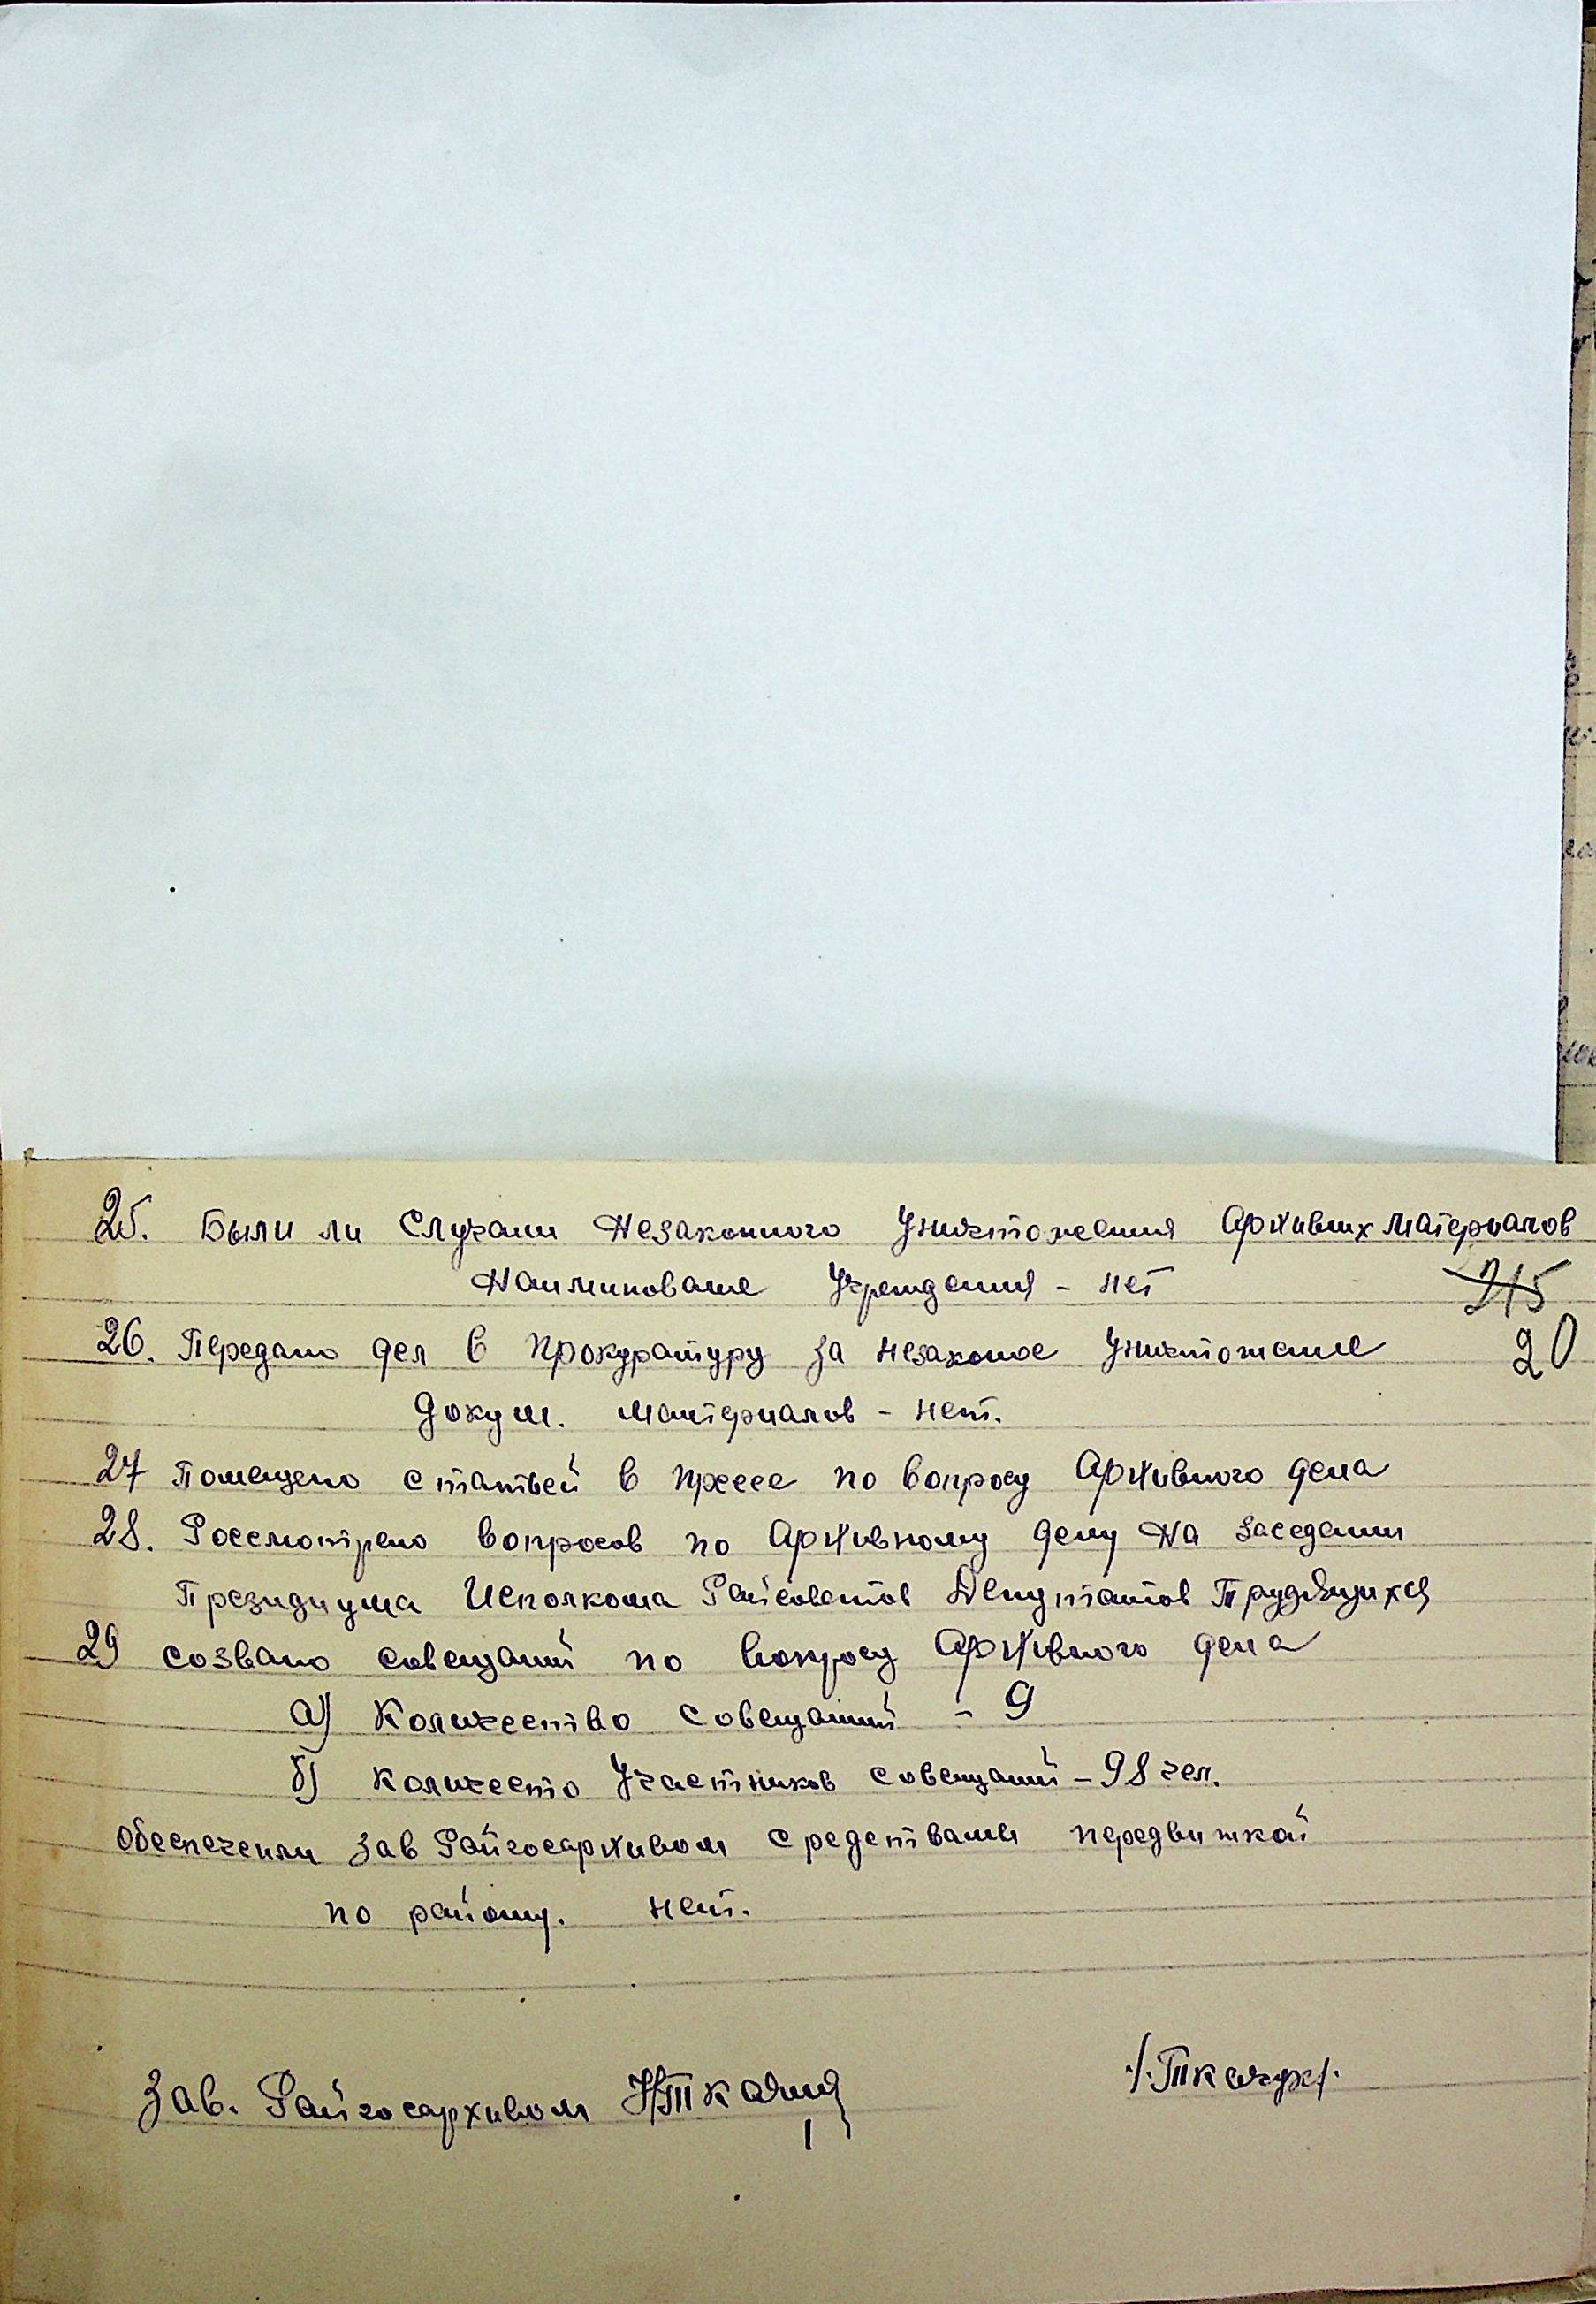 25. Были ли Случаи Незаконного Уничтожения Архивных материалов
Наиминование Учреждения - нет
215
26. Передано дел в прокуратуру за незаконое Уничтожение
20
докум. материалов - нет.
27 Помещено статьей в прессе по вопросу Архивного дела
28. Россмотрено вопросов по Архивному делу На заседании
Президиума Исполкома Райсоветов Депутатов Трудящихся
29 созвано совещаний по вопросу Архивного дела
а) Количество совещаний - 9
б) Количесто Участников совещаний - 98 чел.
Обеспечении зав Райгосархивом средствами передвижкой
по району. нет.
Зав. Райгосархивом
/.Ткачук/.